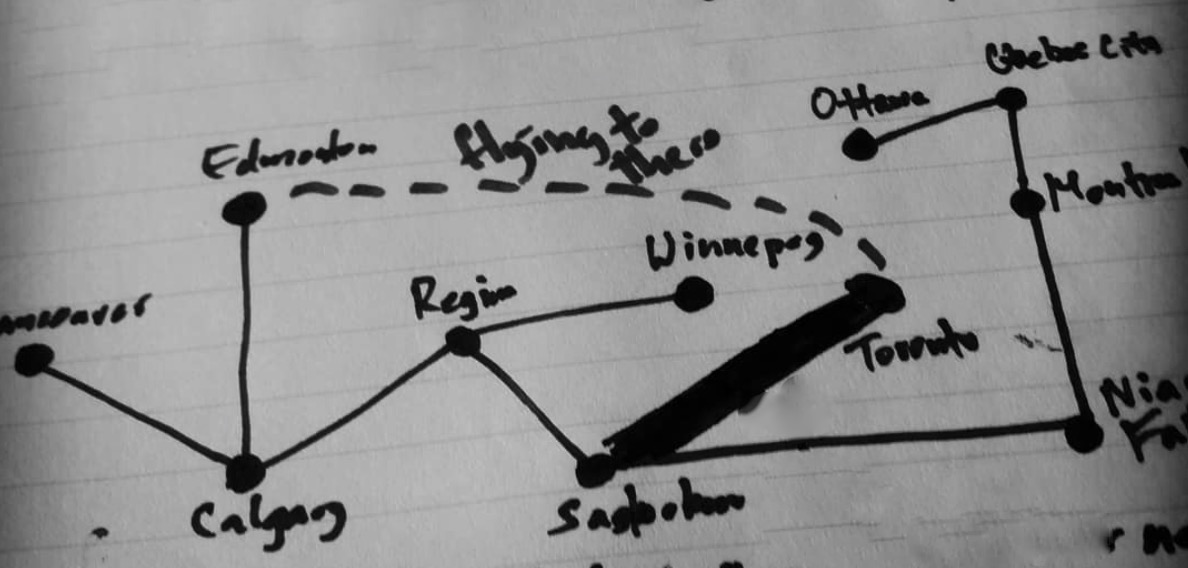 Quebec City
Ottawa
Edmonton
flying to
there
Montrea
Winnepeg
Regina
ancouver
Toronto
Nia
Fa
Calgary
Saskatoon